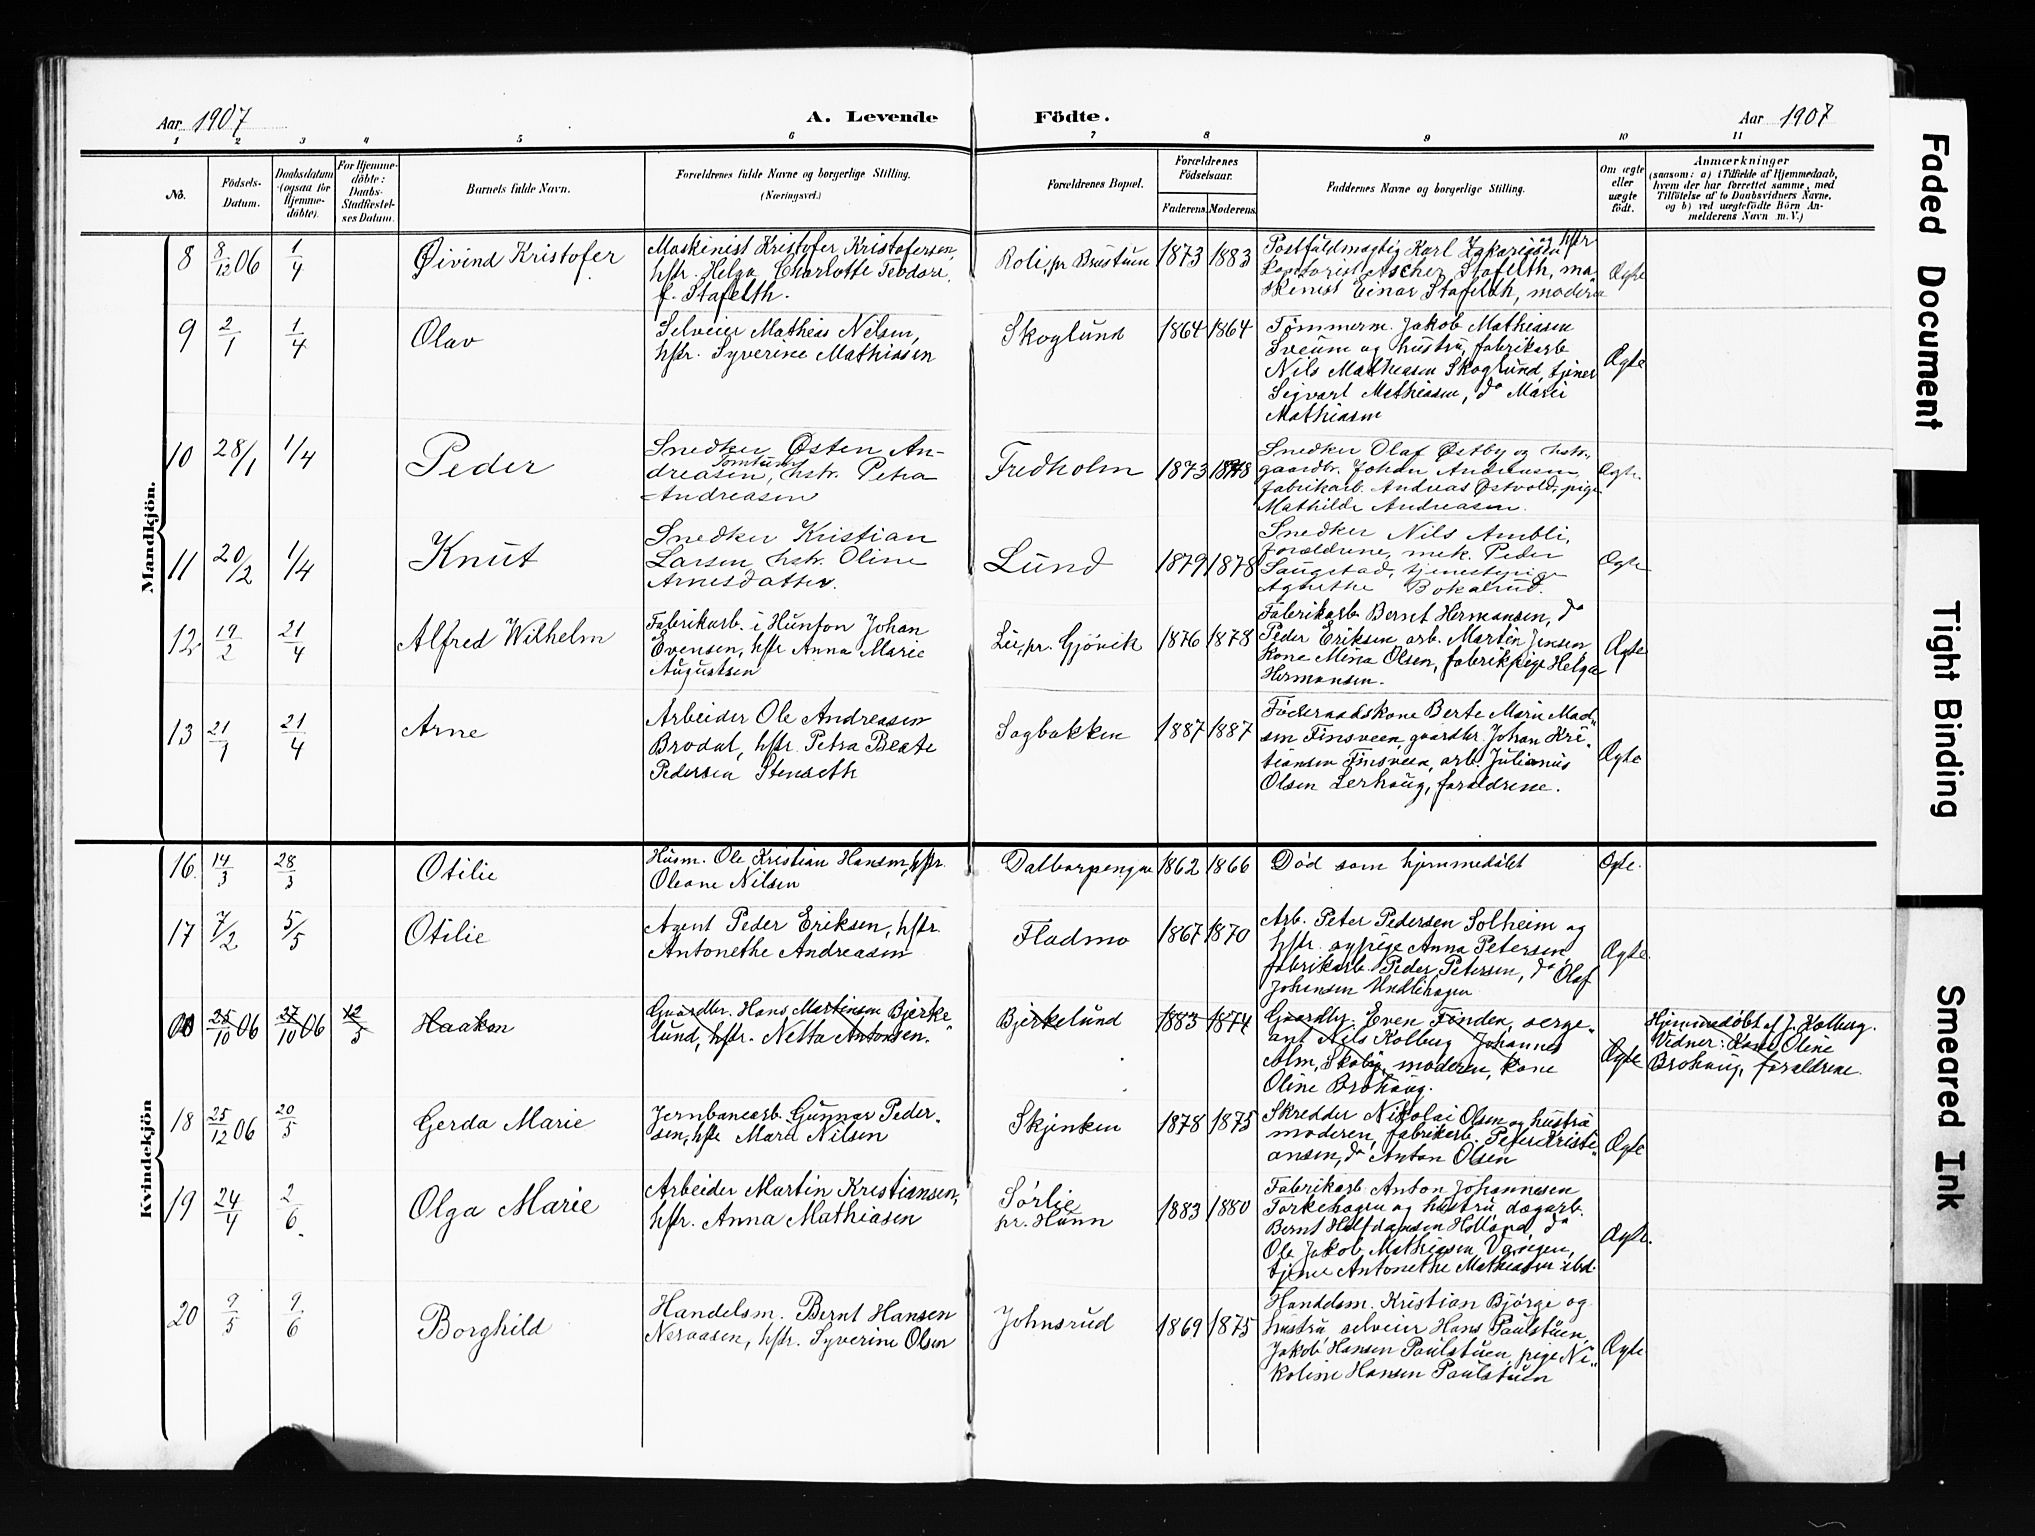 Aar 1907
A. Levende
Födte.
Aar 1907
1 2 3 4 5 6 7 8 9 10 11
No.
Födsels-
Datum.
Daabsdatum
(ogsaa for
Hjemme-
döbte).
For Hjemme-
döbte:
Daabs-
Stadfæstel-
ses Datum.
Barnets fulde Navn.
Forældrenes fulde Navne og borgerlige Stilling.
(Næringsvei.)
Forældrenes Bopæl.
Forældrenes
Födselsaar.
Faderens. Moderens.
Faddernes Navne og borgerlige Stilling.
Om ægte
eller
uægte
født.
Anmærkninger
(saasom: a) i Tilfælde af Hjemmedaab,
hvem der har forrettet samme, med
Tilföielse af to Daabsvidners Navne,
og b) ved uægtefödte Börn An-
melderens Navn m. V.)
Mandkjön.
8 8/12 06 1/4 Øivind Kristofer
Maskinist Kristofer Kristofersen,
hstr. Helga Charlotte Teodora
f. Stafelth.
Roli, pr Brustuen 1873 1883
Postfuldmægtig Karl Zakarisen og hstr
kontorist Ascher Stafelth, ma
skinist Einar Stafelth, modern
Ægte
9 2/1 1/4 Olav
Selveier Mathias Nilsen,
hstr. Syverine Mathiasen
Skoglund 1864 1864
Tømmerm. Jakob Mathiasen
Sveum og hustru, fabrikarb
Nils Mathiasen Skoglund, tjener
Sigvart Mathiasen, do Marie
Mathiasen
Ægte
10 28/1 1/4 Peder
Snedker Østen An-
dreasen Tomtum, hstr. Petra
Andreasen
Fredholm 1873 1878
Snedker Olaf Østby og hstr.,
gaardbr. Johan Andreasen,
fabrikarb. Andreas Østvold, pige
Mathilde Andreasen.
Ægte.
11 20/2 1/4 Knut
Snedker Kristian
Larsen, hstr. Oline
Arnesdatter.
Lund 1879 1878
Snedker Nils Ambli,
forældrene, mek. Peder
Saugstad, tjenestepige
Agnethe Bokalrud.
Ægte
12 19/2 21/4 Alfred Wilhelm
Fabrikarb. i Hunton Johan
Evensen, hstr Anna Marie
Augustsen
Lie, pr. Gjøvik 1876 1878
Fabrikarb Bernt Hermansen, do
Peder Eriksen, arb. Martin Jensen,
Kone Mina Olsen, fabrikpige Helga
Hermansen.
Ægte
13 21/1 21/4 Arne
Arbeider Ole Andreasen
Brodal, hstr. Petra Beate
Pedersen Stenseth
Sagbakken 1887 1887
Föderaadskone Berte Marie Mad-
sen Finsveen, gaardbr Johan Kri-
stiansen Finsveen, arb. Julianus
Olsen Lerhaug, foraldrene.
Ægte
Kvindekjön
16. 14/3 28/3 Otilie
Husm. Ole Kristian Hansen, hstr.
Oleane Nilsen
Dalborpengen 1862 1866
Død som hjemmedøbt
Ægte.
17 7/2 5/5 Otilie
Agent Peder Eriksen, hstr.
Antonethe Andreasen
Fladmo 1867 1870
Arb. Peter Pedersen Solheim og
hstr. sypige Anna Petersen,
fabrikarb. Peder Petersen, do Olaf
Johansen Undlihagen
Ægte.
25/10 06 27/10 06 12/5 Haakon
Gaardbr. Hans Martinsen Bjerke-
lund, hstr. Netta Antonsen.
Bjerkelund 1883 1874
Gaardbr. Even Finden, serge-
ant Nils Kolberg Johannes
Alm, Skoby, moderen, kone
Oline Brohaug.
Ægte
Hjemmedøbt af J. Kolberg.
Vidner: Kone Oline
Brohaug, foraldrene.
18 25/12 06 20/5 Gerda Marie
Jernbanearb. Gunnar Peder-
sen, hstr Maren Nilsen
Skjenken 1878 1875
Skredder Nikolai Olsen og hustru
moderen, fabrikarb. Peter Kristi-
ansen, do Anton Olsen
Ægte
19 24/4 2/6. Olga Marie
Arbeider Martin Kristiansen,
hstr. Anna Mathiasen
Sørlie
pr. Hunn 1883 1880
Fabrikarb Anton Johannesen
Torkehagen og hustru dagarb.
Bernt Halfdansen Holland, do
Ole Jakob Mathiasen Vangen,
tjener Antonethe Mathiasen ibd
Ægte.
20 9/5 9/6 Borghild
Handelsm. Bernt Hansen
Neraasen, hstr. Syverine Olsen
Johnsrud 1869 1875
Handelsm. Kristian Bjørge og
hustru, selveier Hans Paulstuen,
Jakob Hansen Paulstuen, pige Ni-
koline Hansen Paulstuen
Ægte
Faded Document
Tight Binding
Smeared Ink